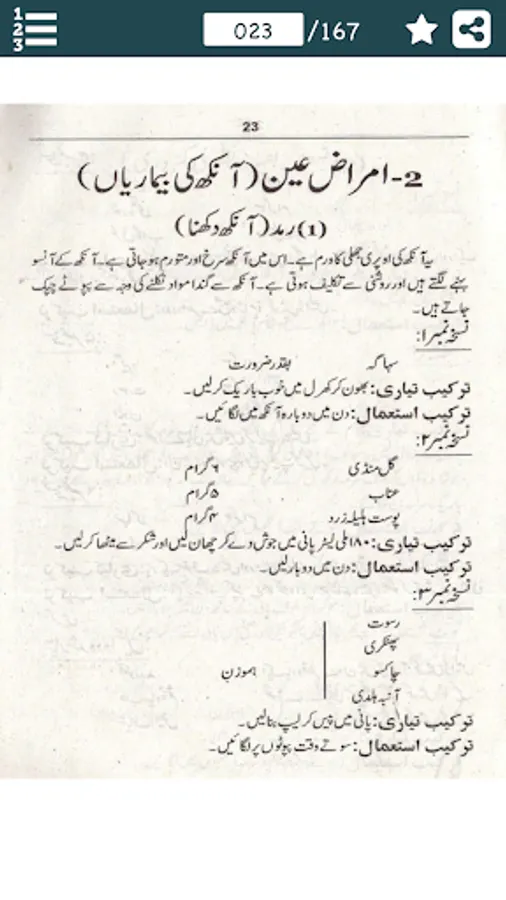 1
2
3
023 /167
23
2- امراض عین (آنکھ کی بیماریاں)
(1) رمد (آنکھ دکھنا)
یہ آنکھ کی اوپری جھلی کا ورم ہے۔ اس میں آنکھ سرخ اور متورم ہو جاتی ہے۔ آنکھ کے آنسو
بہنے لگتے ہیں اور روشنی سے تکلیف ہوتی ہے۔ آنکھ سے گندا مواد نکلنے کی وجہ سے پپوٹے چپک
جاتے ہیں۔
نسخہ نمبر ۱:
سہاگہ بقدر ضرورت
ترکیب تیاری: بھون کر کھرل میں خوب باریک کرلیں۔
ترکیب استعمال: دن میں دو بارہ آنکھ میں لگائیں۔
نسخہ نمبر ۲:
گل منڈی ۶ گرام
عناب ۵ گرام
پوست ہلیلہ زرد ۴ گرام
ترکیب تیاری: ۱۸۰ ملی لیٹر پانی میں جوش دے کر چھان لیں اور شکر سے میٹھا کرلیں۔
ترکیب استعمال: دن میں دو بار لیں۔
نسخہ نمبر ۳:
رسوت
پھٹکری
چاکسو ہموزن
آنبہ ہلدی
ترکیب تیاری: پانی میں پیس کر لیپ بنالیں۔
ترکیب استعمال: سوتے وقت پپوٹوں پر لگائیں۔